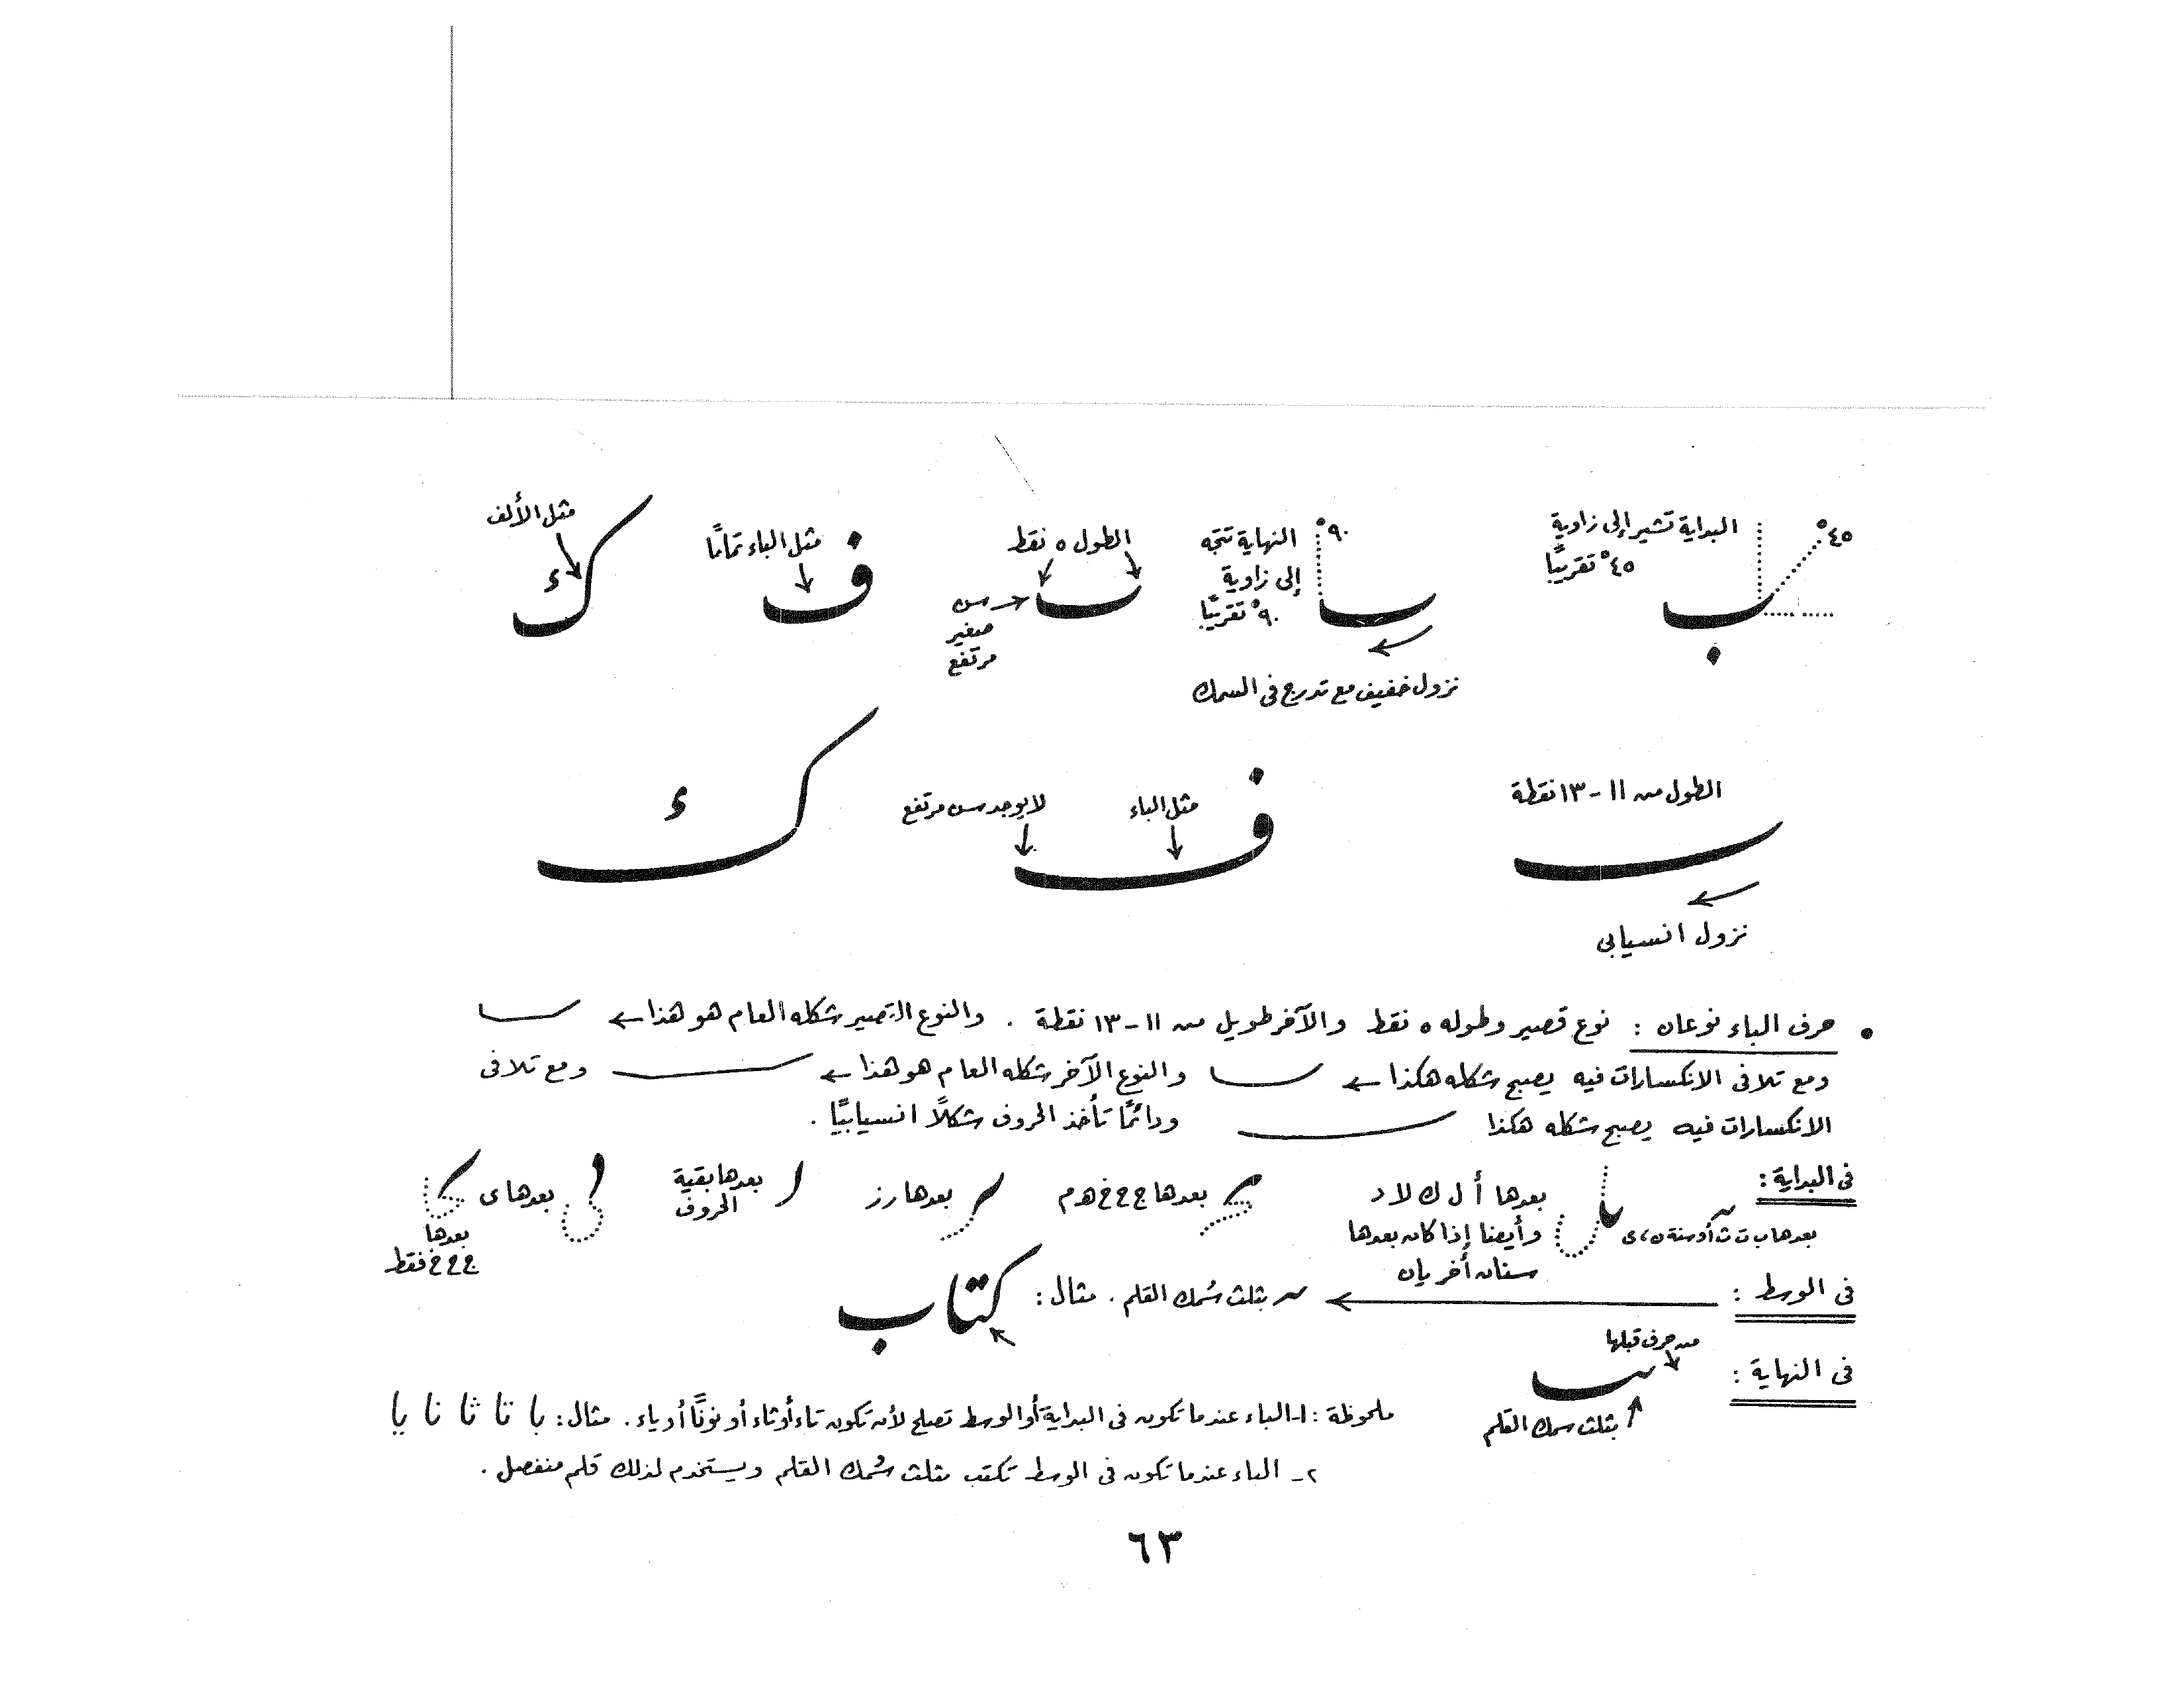 ٤٥°
البداية تشير إلى زاوية
٤٥° تقريبًا
ب
٩٠°
النهاية تتجه
إلى زاوية
٩٠° تقريبًا
نزول خفيف مع تدرج فى السمك
الطول ٥ نقط
سن
صغير
مرتفع
ف
مثل الباء تمامًا
ك
مثل الألف
الطول من ١١ - ١٣ نقطة
نزول انسيابى
ف
مثل الباء
لا يوجد سن مرتفع
ك
• حرف الباء نوعان : نوع قصير وطوله ٥ نقط والآخر طويل من ١١ - ١٣ نقطة . والنوع القصير شكله العام هو هذا ←
ومع تلافى الانكسارات فيه يصبح شكله هكذا ← والنوع الآخر شكله العام هو هذا ← ومع تلافى
الانكسارات فيه يصبح شكله هكذا ودائمًا تأخذ الحروف شكلاً انسيابيًا .
فى البداية :
بعدها ب ت ث أو سنة ن ، ى
بعدها أ ل ك لا د
وأيضا إذا كان بعدها
سنان أخريان
بعدها ج ح خ ه م
بعدها ر ز
بعدها بقية
الحروف
بعدها ى
بعدها
ج ح خ فقط
فى الوسط : ← بثلث سُمك القلم . مثال : كتاب
فى النهاية :
من حرف قبلها
بثلث سمك القلم
ملحوظة : ١- الباء عندما تكون فى البداية أو الوسط تصلح لأن تكون تاء أو ثاء أو نونًا أو ياء . مثال : با تا ثا نا يا
٢- الباء عندما تكون فى الوسط تكتب بثلث سُمك القلم ويستخدم لذلك قلم منفصل .
٦٣